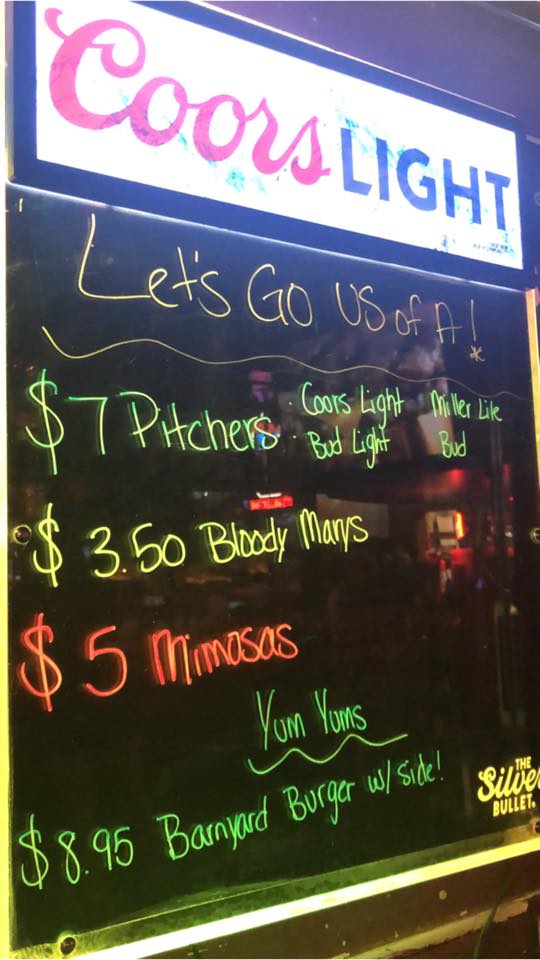 Coors LIGHT
Let's Go US of A!
$7 Pitchers · Coors Light Miller Lite
· Bud Light Bud
$3.50 Bloody Marys
$5 Mimosas
Yum Yums
$8.95 Barnyard Burger w/ side!
THE
Silve
BULLET.